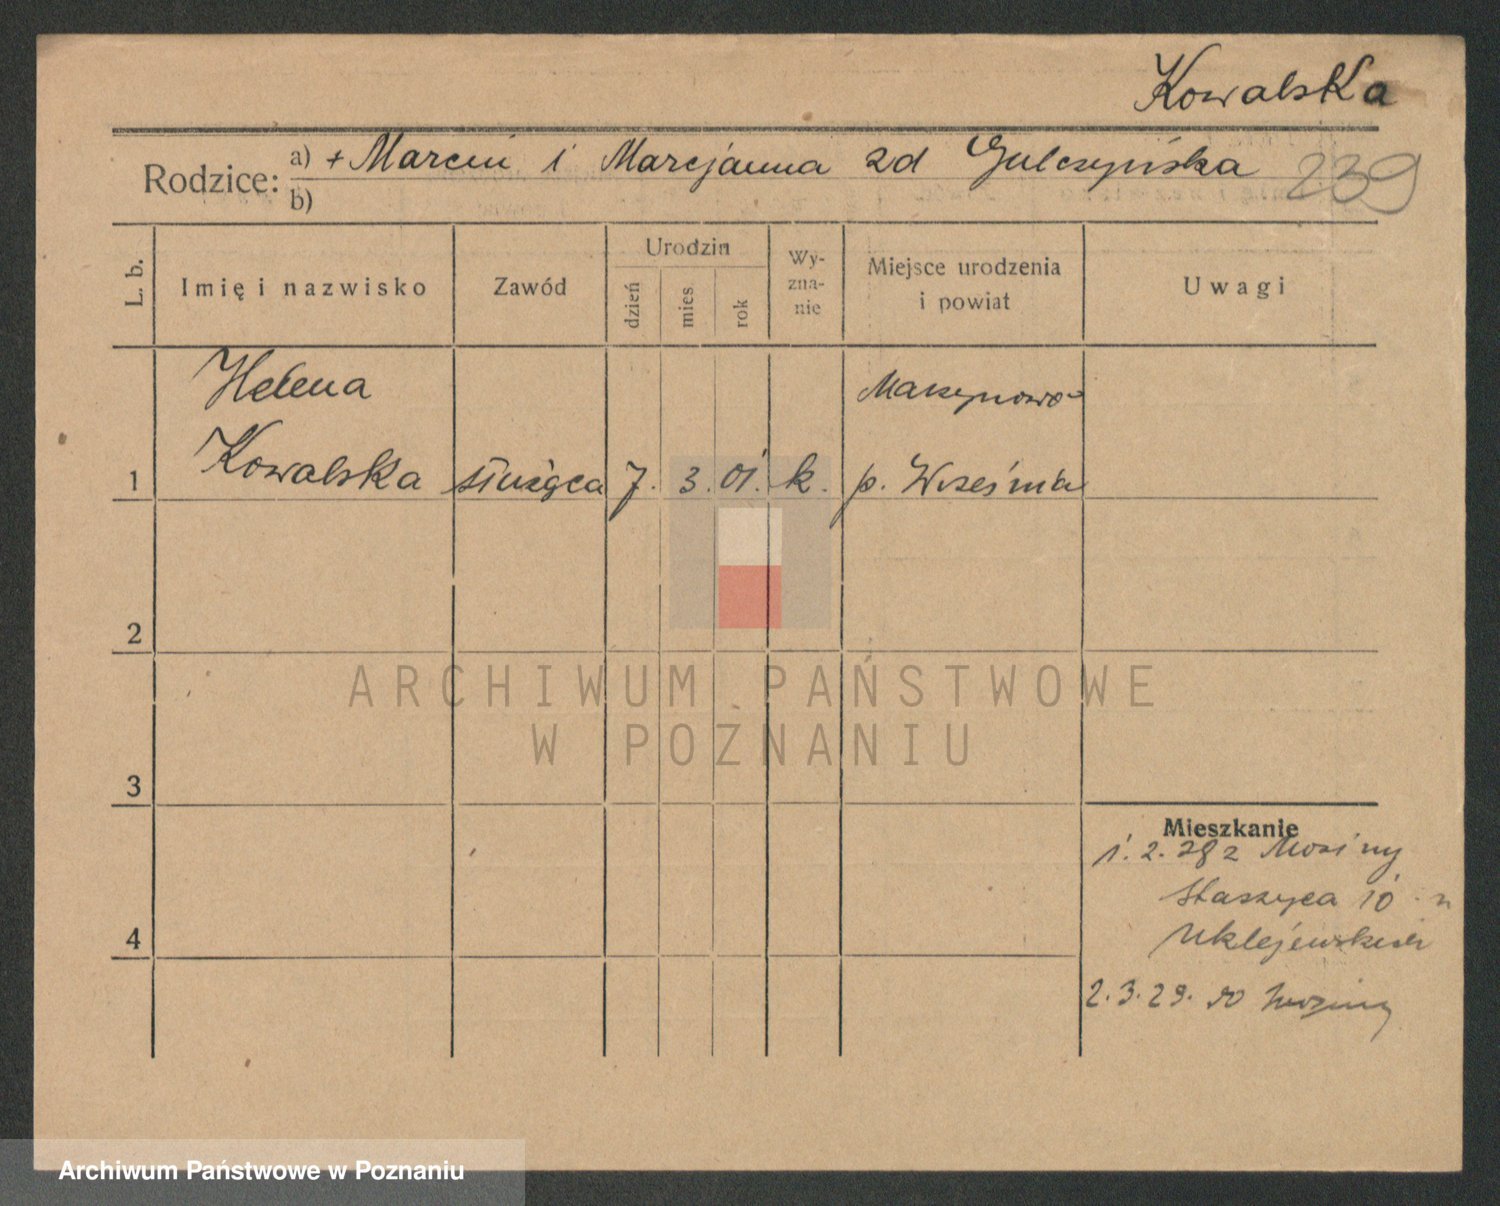 Kowalska
Rodzice: a) + Marcin i Marcjanna zd Gulczyńska 239
b)
L. b.
Imię i nazwisko
Zawód
Urodzin
dzień
mies
rok
Wy-
zna-
nie
Miejsce urodzenia
i powiat
Uwagi
Helena
Kowalska
1
służąca
7. 3. 01.
k.
p. Września
2
3
4
Mieszkanie
1. 2. 28 z Mosiny
Staszyca 10
2. 3. 29. do
ARCHIWUM PAŃSTWOWE
W POZNANIU
Archiwum Państwowe w Poznaniu